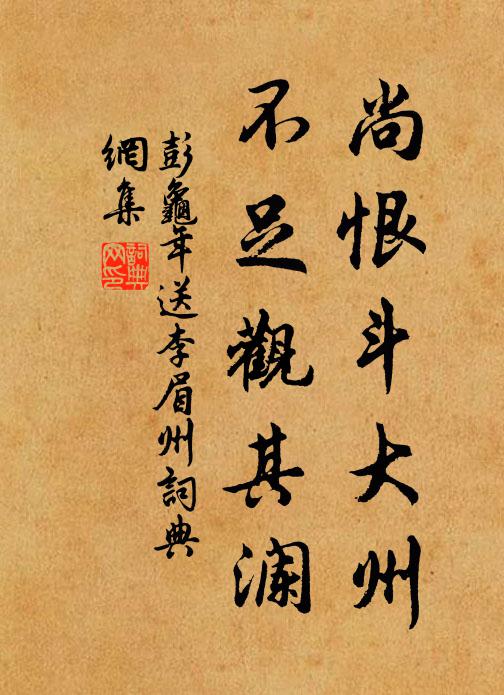 尚恨斗大州
不足觀其澜
彭龜年送李眉州詞典
網集
詞典
网印